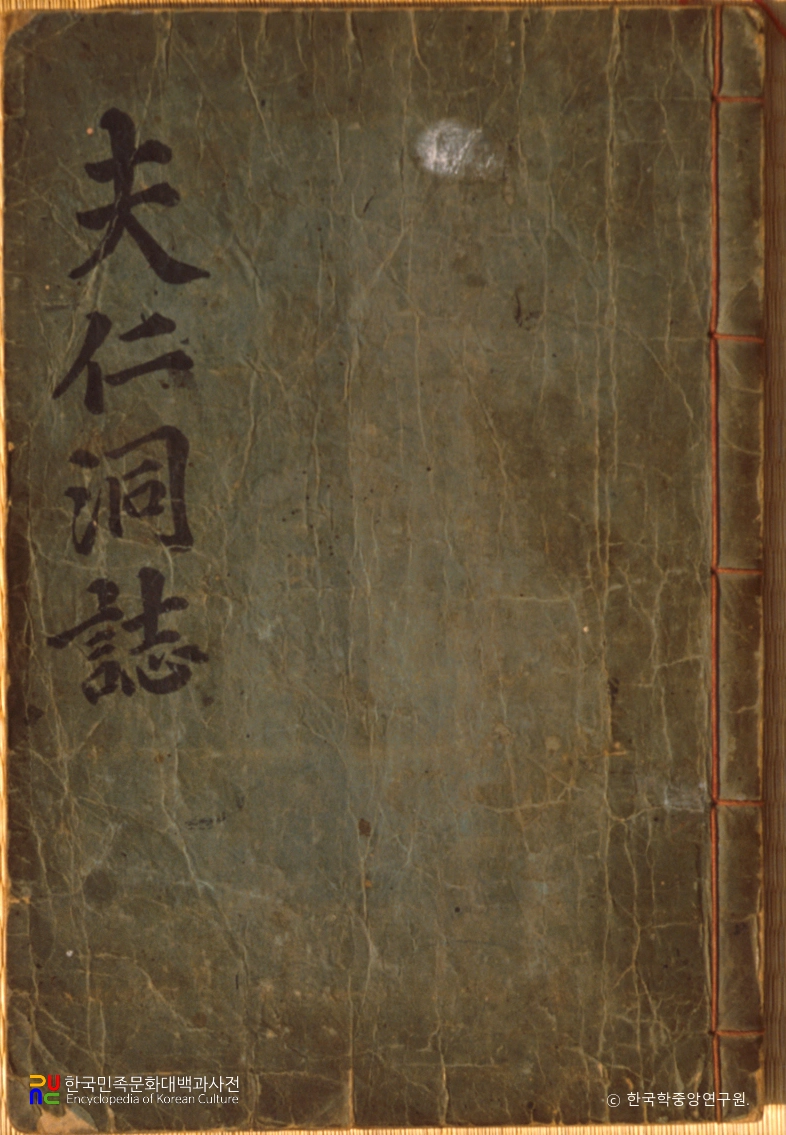 夫仁洞誌
한국민족문화대백과사전
Encyclopedia of Korean Culture
ⓒ 한국학중앙연구원.